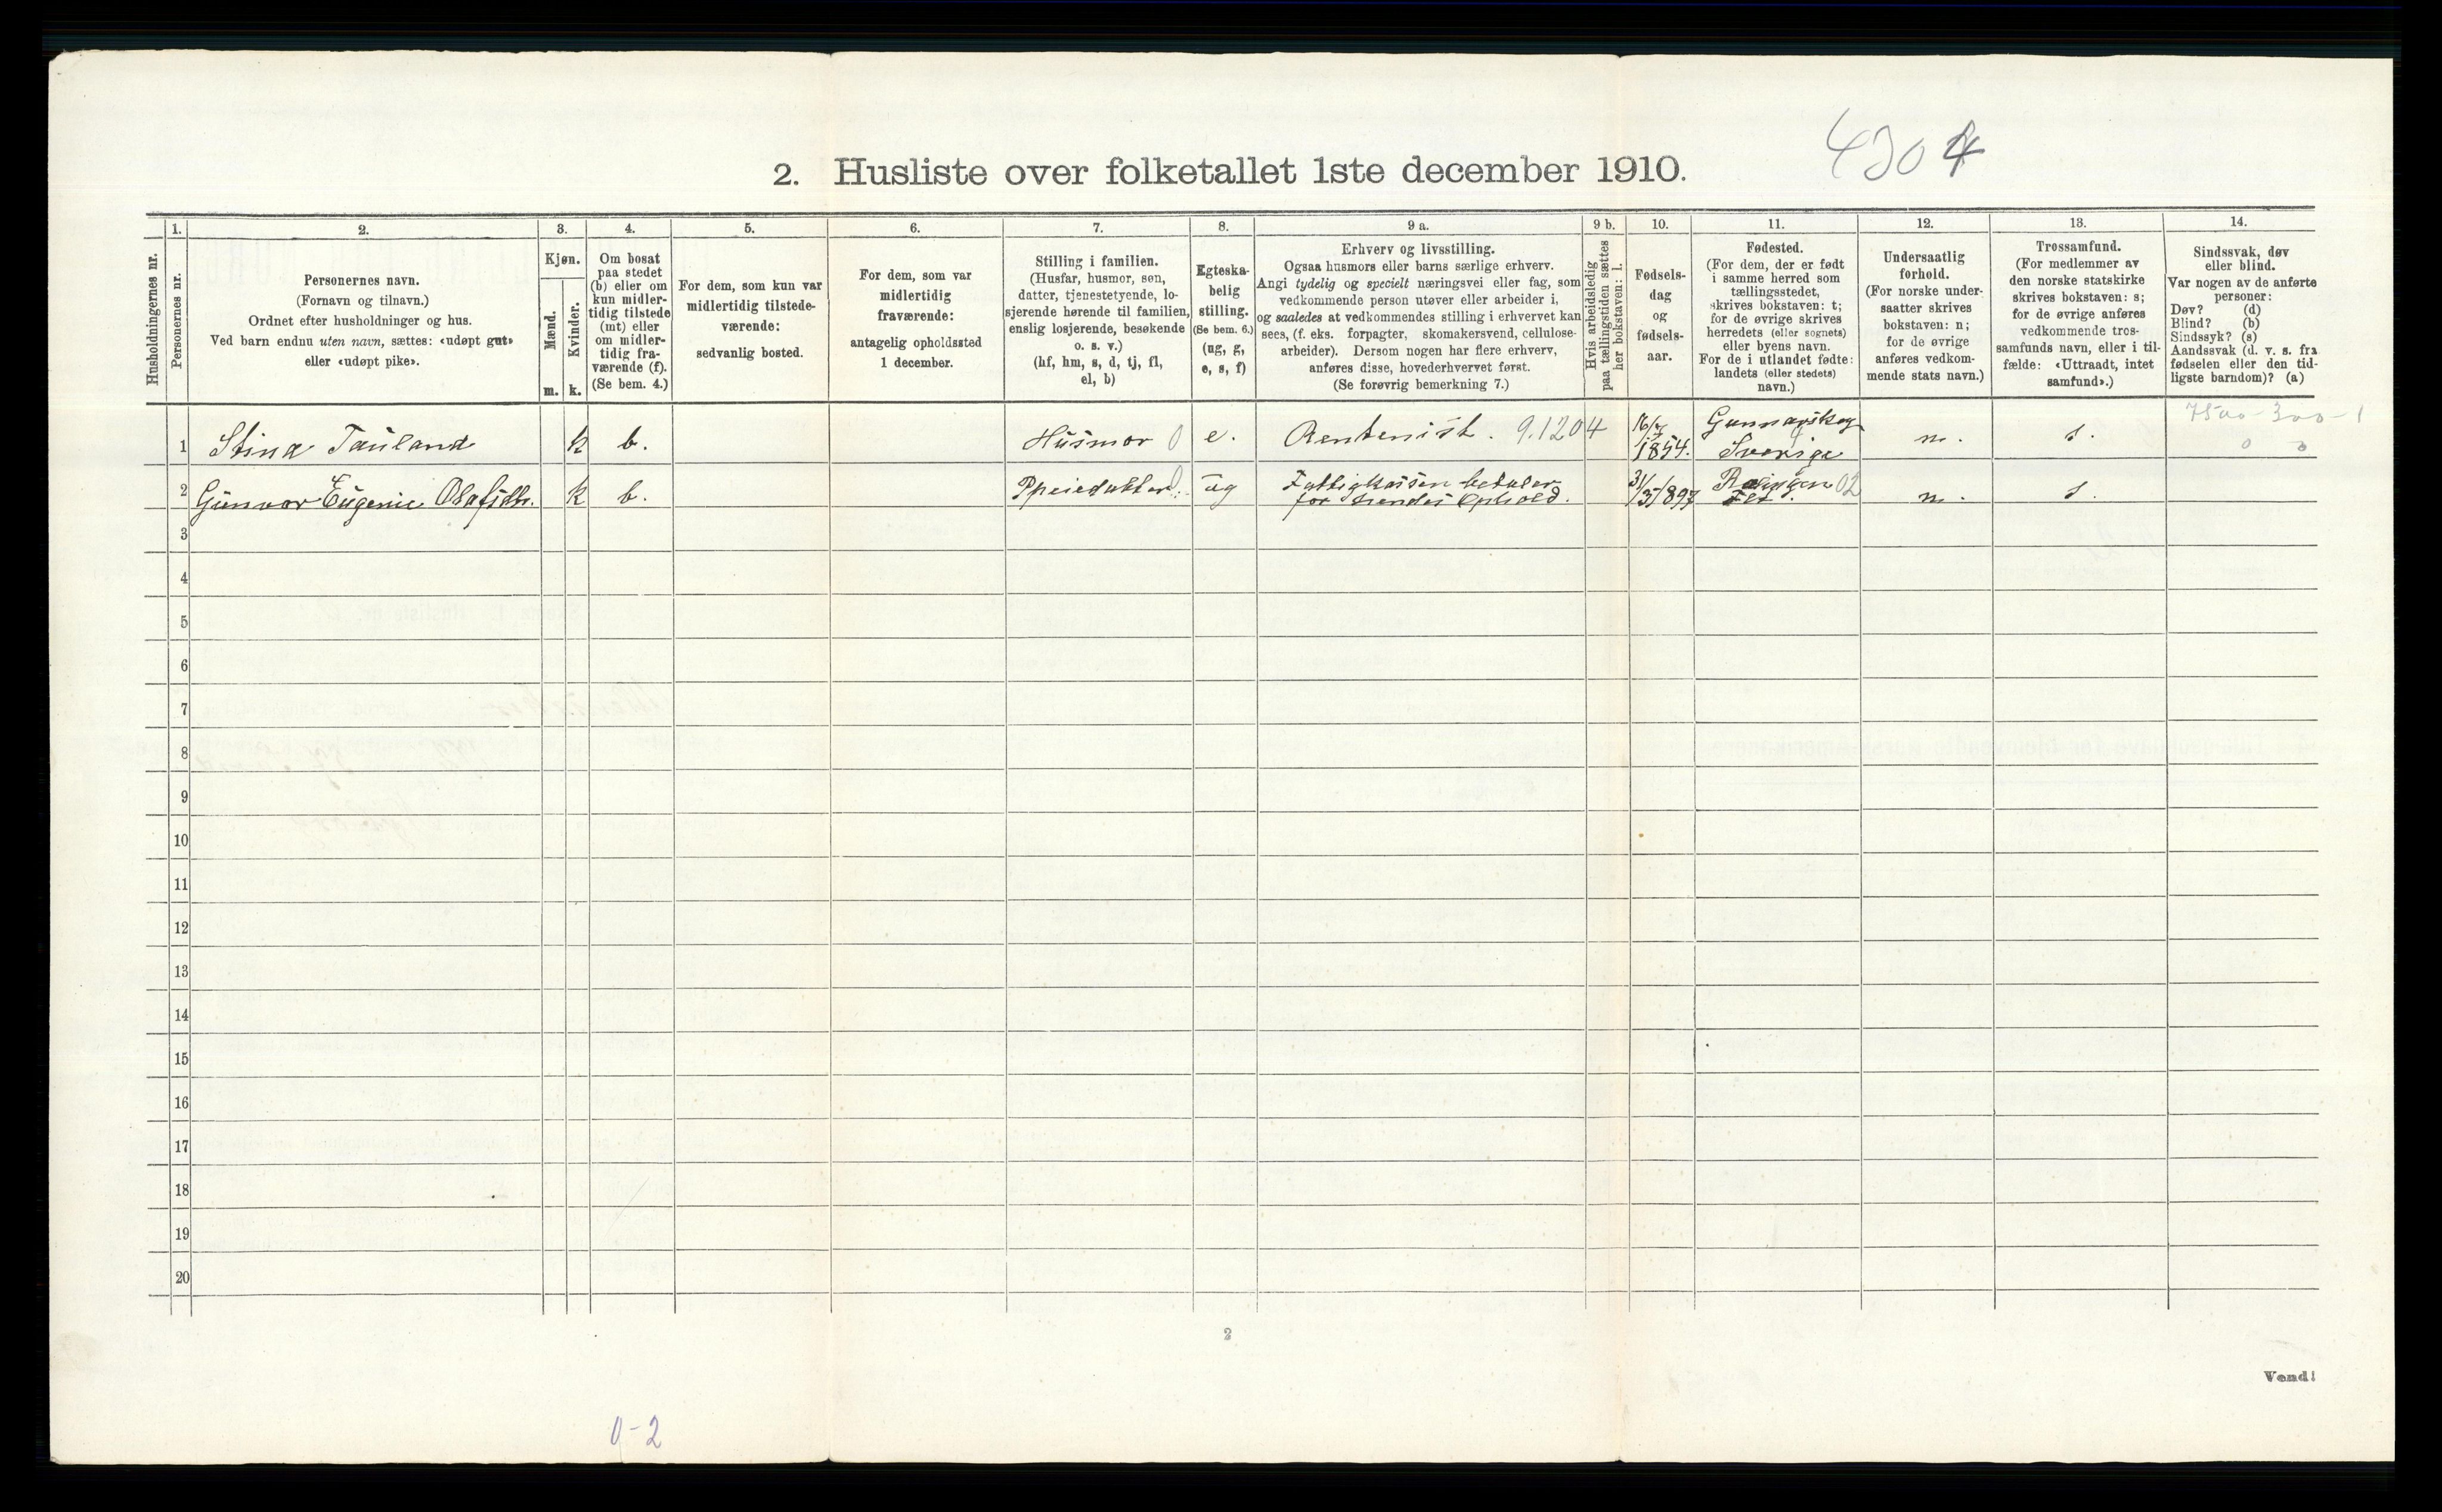 4304
2. Husliste over folketallet 1ste december 1910.
Husholdningernes nr.
1.
Personernes nr.
2.
Personernes navn.
(Fornavn og tilnavn.)
Ordnet efter husholdninger og hus.
Ved barn endnu uten navn, sættes: «udøpt gut»
eller «udøpt pike».
3.
Kjøn.
Mænd.
m.
Kvinder.
k.
4.
Om bosat
paa stedet
(b) eller om
kun midler-
tidig tilstede
(mt) eller
om midler-
tidig fra-
værende (f).
(Se bem. 4.)
5.
For dem, som kun var
midlertidig tilstede-
værende:
sedvanlig bosted.
6.
For dem, som var
midlertidig
fraværende:
antagelig opholdssted
1 december.
7.
Stilling i familien.
(Husfar, husmor, søn,
datter, tjenestetyende, lo-
sjerende hørende til familien,
enslig losjerende, besøkende
o. s. v.)
(hf, hm, s, d, tj, fl,
el, b)
8.
Egteska-
belig
stilling.
(Se bem. 6.)
(ug, g,
e, s, f)
9 a.
Erhverv og livsstilling.
Ogsaa husmors eller barns særlige erhverv.
Angi tydelig og specielt næringsvei eller fag, som
vedkommende person utøver eller arbeider i,
og saaledes at vedkommendes stilling i erhvervet kan
sees, (f. eks. forpagter, skomakersvend, cellulose-
arbeider). Dersom nogen har flere erhverv,
anføres disse, hovederhvervet først.
(Se forøvrig bemerkning 7.)
9 b.
Hvis arbeidsledig
paa tællingstiden sættes
her bokstaven: l.
10.
Fødsels-
dag
og
fødsels-
aar.
11.
Fødested.
(For dem, der er født
i samme herred som
tællingsstedet,
skrives bokstaven: t;
for de øvrige skrives
herredets (eller sognets)
eller byens navn.
For de i utlandet fødte:
landets (eller stedets)
navn.)
12.
Undersaatlig
forhold.
(For norske under-
saatter skrives
bokstaven: n;
for de øvrige
anføres vedkom-
mende stats navn.)
13.
Trossamfund.
(For medlemmer av
den norske statskirke
skrives bokstaven: s;
for de øvrige anføres
vedkommende tros-
samfunds navn, eller i til-
fælde: «Uttraadt, intet
samfund».)
14.
Sindssvak, døv
eller blind.
Var nogen av de anførte
personer:
Døv? (d)
Blind? (b)
Sindssyk? (s)
Aandssvak (d. v. s. fra
fødselen eller den tid-
ligste barndom)? (a)
7500-300-1
0 0
1 Stina Tauland k b. Husmor 0 e. Rentenist. 9.1204 16/7 1854. Gunnarskog Sverige n. s.
2 Gunvor Eugenie Olafsdtr. k b. Ppleiedatter ug Fattigkassen betaler for hendes Ophold. 31/5/897 02 n. s.
3
4
5
6
7
8
9
10
11
12
13
14
15
16
17
18
19
20
2
Vend!
0-2